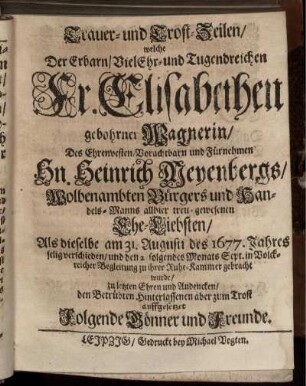 Trauer- und Trost-Zeilen/
welche
Der Erbarn/ VielEhr- und Tugendreichen
Fr. Elisabethen
gebohrner Wagnerin/
Des Ehrenvesten/ Vorachtbarn und Fürnehmen
Hn. Heinrich Meyenbergs/
Wolbenambten Bürgers und Han-
dels-Manns allhier treu-gewesenen
Ehe-Liebsten/
Als dieselbe am 31. Augusti des 1677. Jahres
selig verschieden/ und den 2 folgendes Monats Sept. in Volck-
reicher Begleitung zu ihrer Ruhe-Kammer gebracht
wurde/
zu letzten Ehren und Andencken/
den Betrübten Hinterlassenen aber zum Trost
auffgesetzet
Folgende Gönner und Freunde.
LEIPZIG/ Gedruckt bey Michael Vogten.